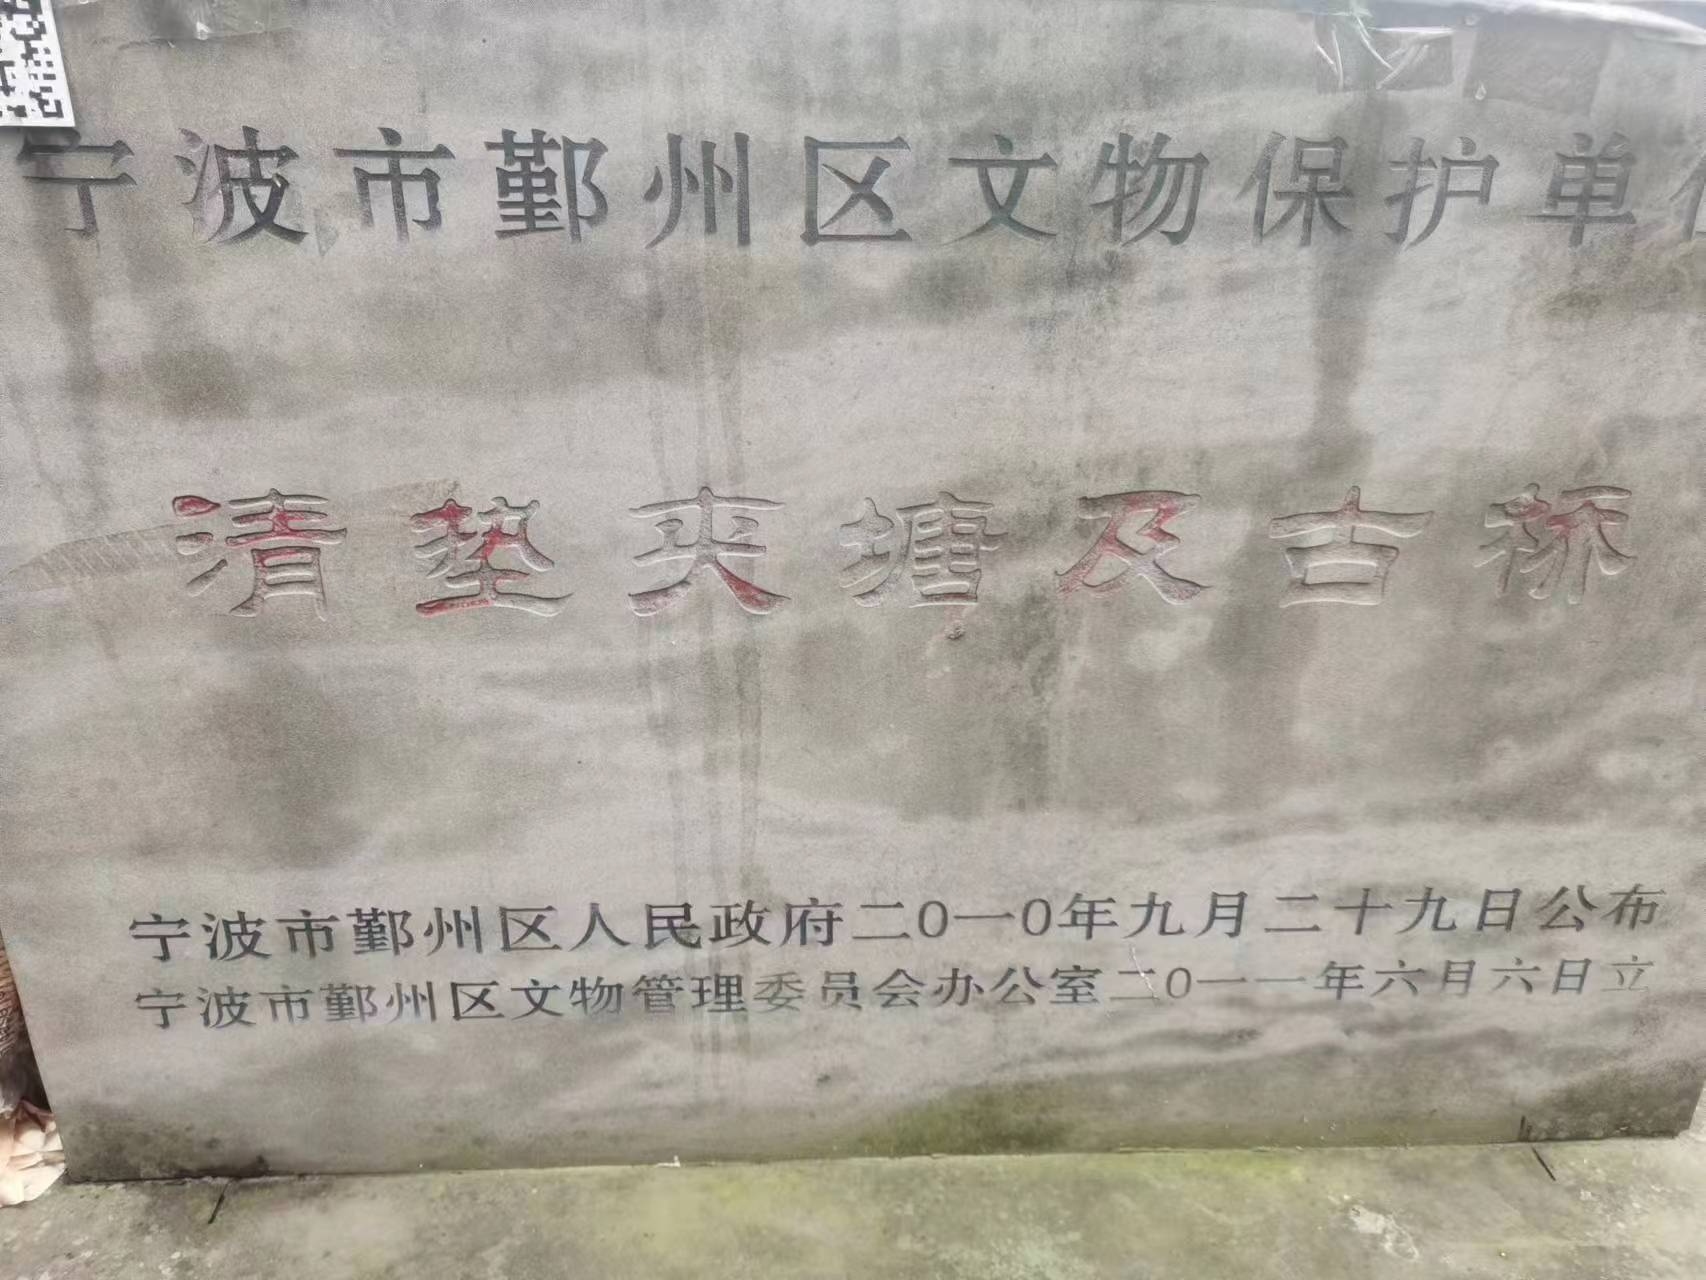 宁波市鄞州区文物保护单位
清垫夹塘及古桥
宁波市鄞州区人民政府二0一0年九月二十九日公布
宁波市鄞州区文物管理委员会办公室二0一一年六月六日立